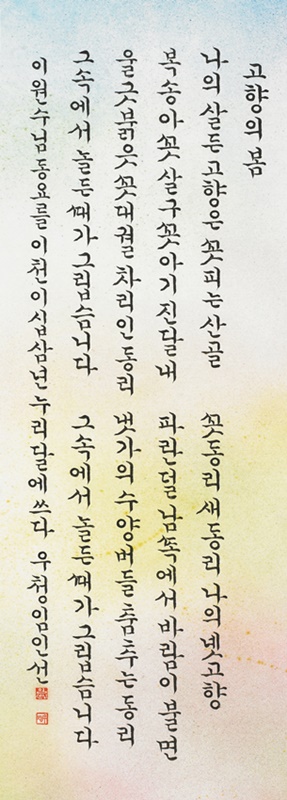 고향의 봄
나의 살든 고향은 꼿피는 산골
복송아꼿 살구꼿 아기 진달내
울긋붉읏 꼿대궐 차리인 동리
그속에서 놀든 때가 그립슴니다
꼿동리 새동리 나의 녯고향
파란덜 남쪽에서 바람이 불면
냇가의 수양버들 춤추는 동리
그속에서 놀든 때가 그립슴니다
이원수님 동요를 이천이십삼년 누리달에 쓰다 우청 임인선